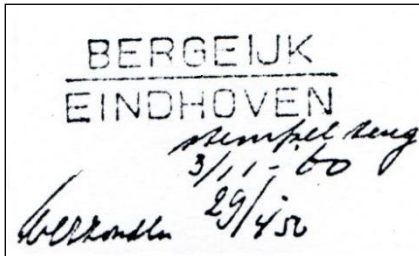 BERGEIJK
EINDHOVEN
stempel terug
3/11-60
verzonden
29/4 50